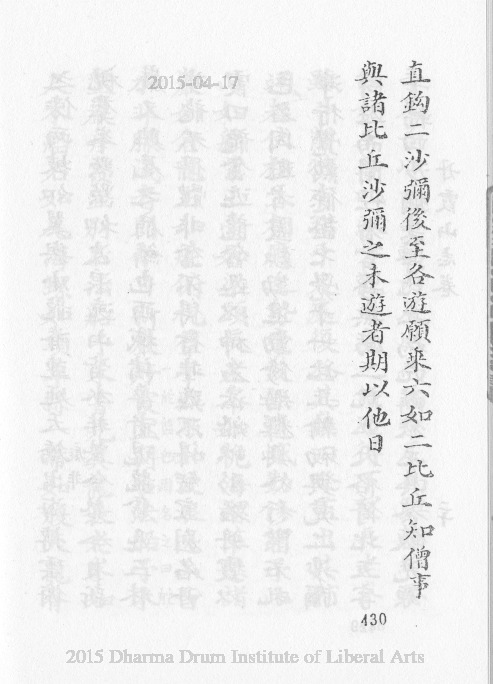 直鈎二沙彌後至各遊願來六如二比丘知僧事
與諸比丘沙彌之未遊者期以他日
430
2015-04-17
2015 Dharma Drum Institute of Liberal Arts